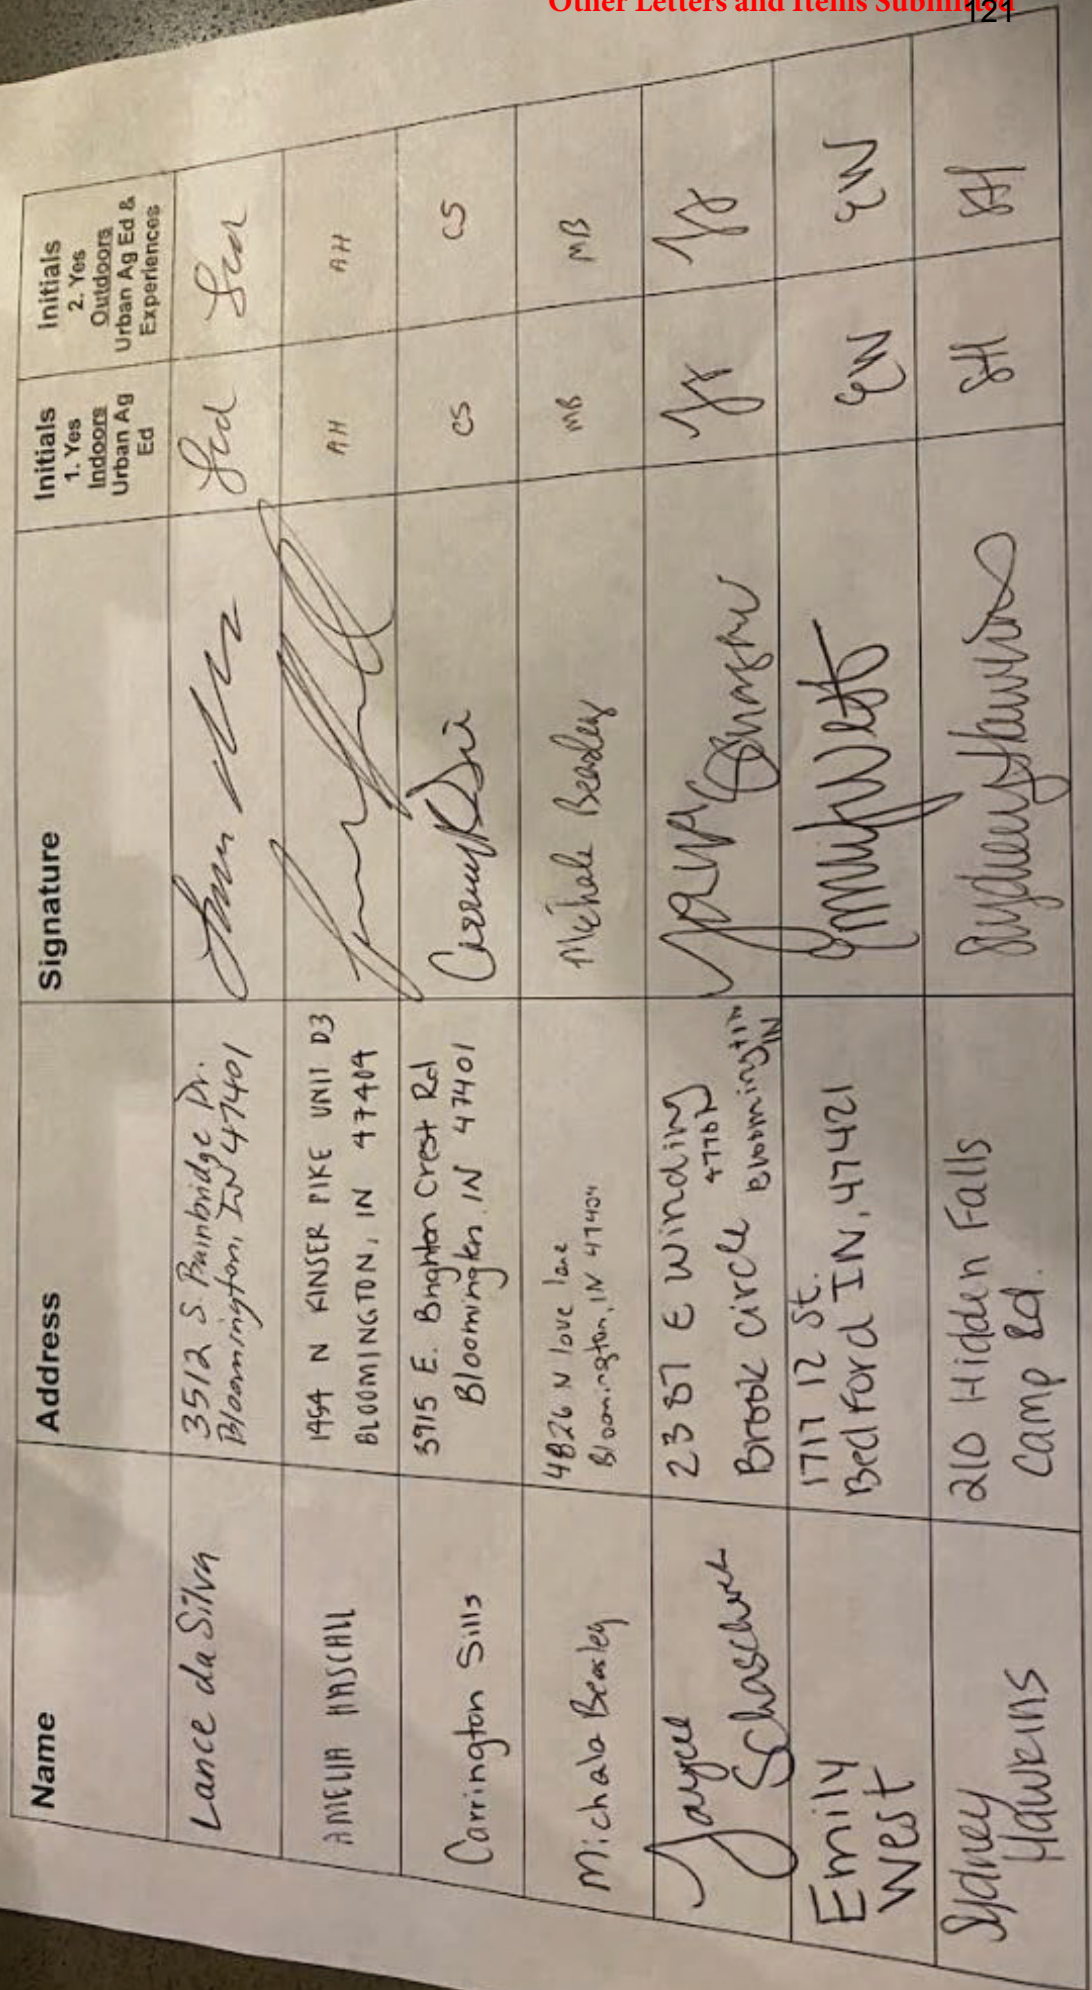 Other Letters and Items Submitted
121
Name
Address
Signature
Initials
1. Yes
Indoors
Urban Ag
Ed
Initials
2. Yes
Outdoors
Urban Ag Ed &
Experiences
Lance da Silva
3512 S. Bainbridge Dr.
Bloomington, IN 47401
AMELIA HASCHLL
1454 N KINSER PIKE UNIT D3
BLOOMINGTON, IN 47404
AH
AH
Carrington Sills
3915 E. Brighton Crest Rd
Bloomington, IN 47401
CS
CS
Michala Beasley
4826 N love lane
Bloomington, IN 47404
Michala Beasley
MB
MB
Jaycee
2387 E Winding
Brook Circle
Bloomington
IN
Emily
West
1717 12 St.
Bedford IN, 47421
Emily West
EW
EW
Sydney
Hawkins
210 Hidden Falls
Camp Rd.
Sydney Hawkins
SH
SH